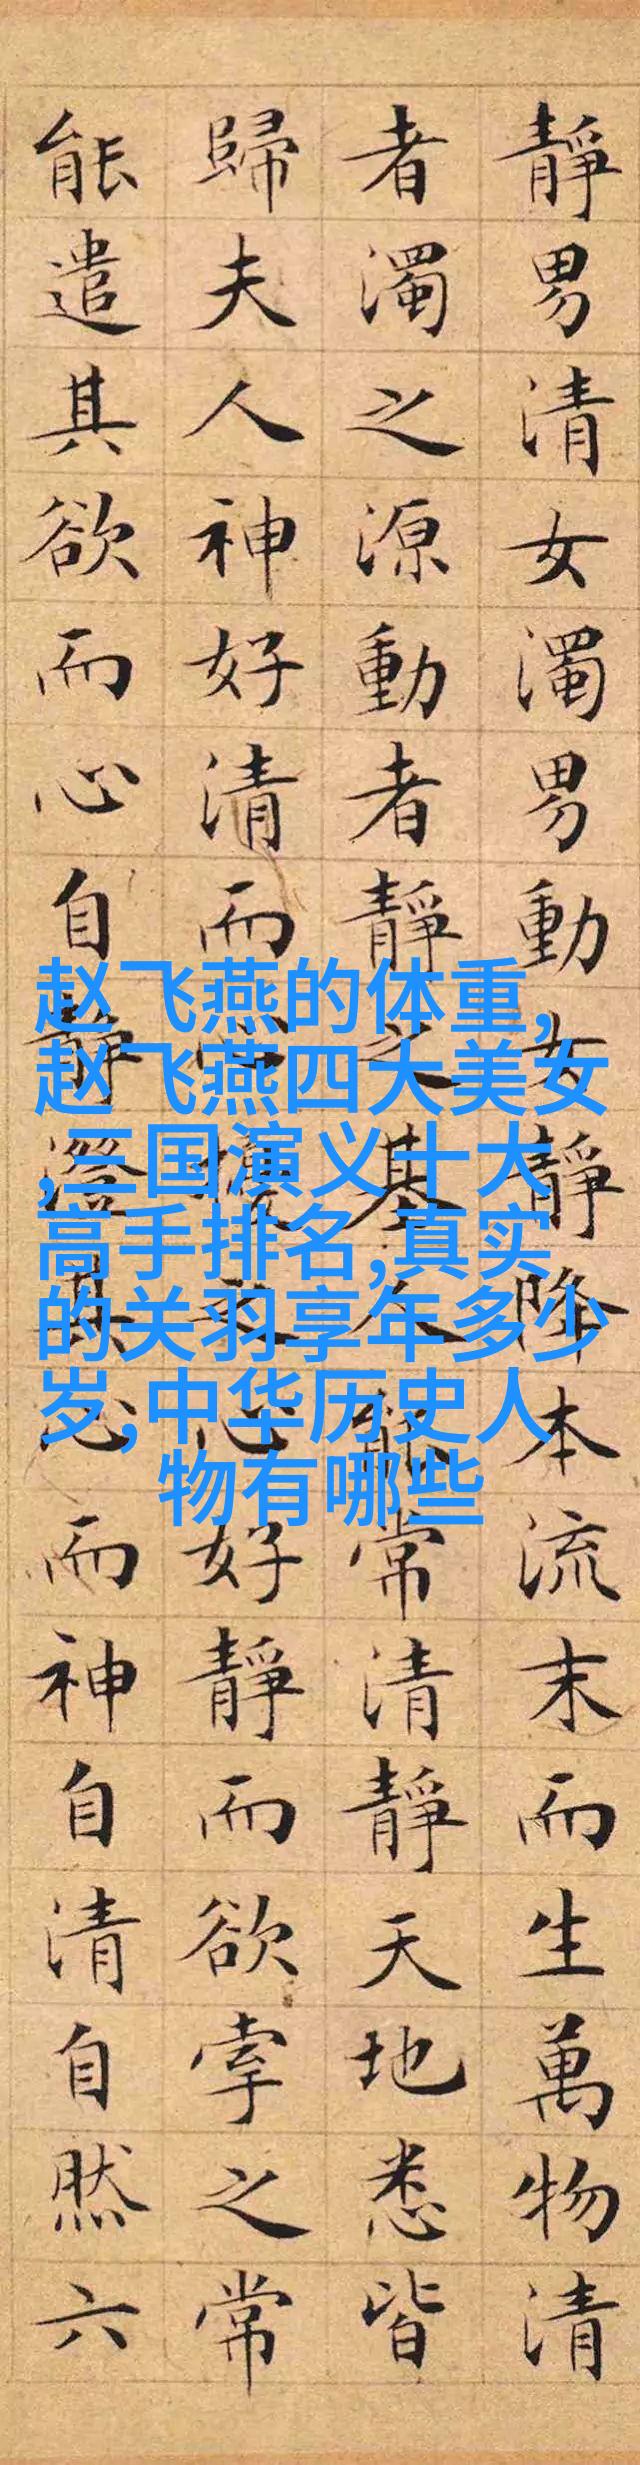 靜男清女濁男動女靜降本流末而生萬物清
者濁之源動者靜之基人能常清靜天地悉皆
歸夫人神好清而心擾之心好靜而欲牽之常
能遣其欲而心自靜澄其心而神自清自然六
赵飞燕的体重,
赵飞燕四大美女
,三国演义十大
高手排名,真实
的关羽享年多少
岁,中华历史人
物有哪些